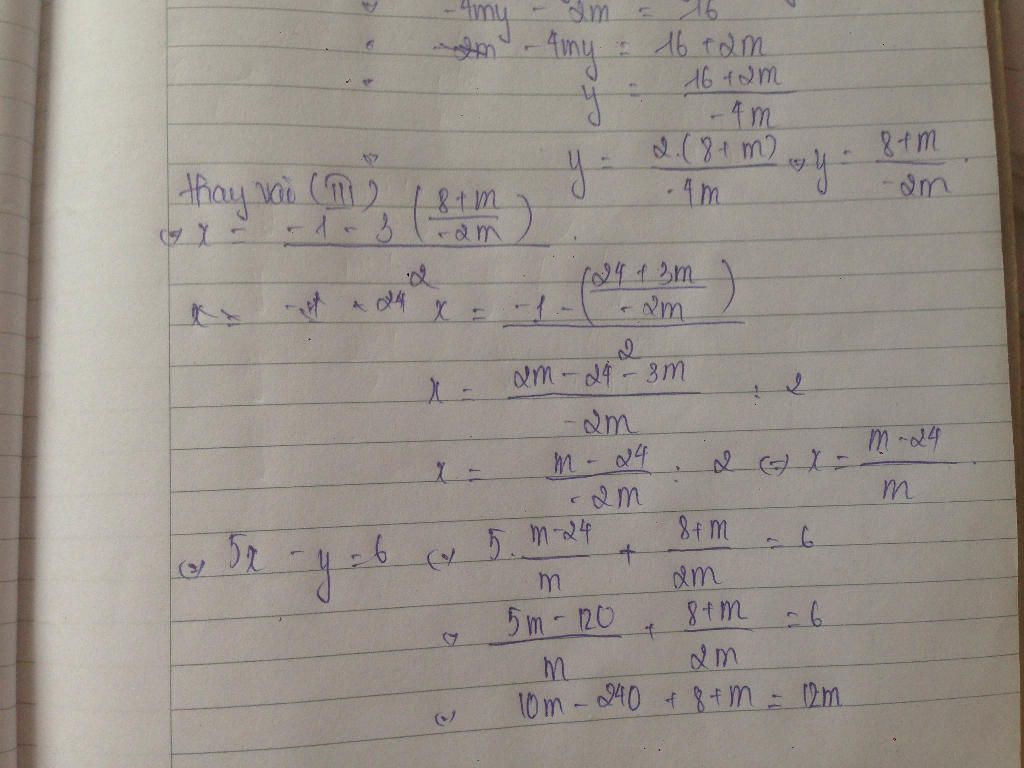 -4my - 2m = 16
- 4my = 16 + 2m
y = (16 + 2m)/(-4m)
y = (2.(8 + m))/(-4m) ⇔ y = (8 + m)/(-2m).
thay vào (II)
⇔ x = (-1 - 3((8 + m)/(-2m)))/2.
x = x = (-1 - ((24 + 3m)/(-2m)))/2
x = (2m - 24 - 3m)/(-2m) : 2
x = (m - 24)/(-2m) : 2 ⇔ x = (m - 24)/m.
⇔ 5x - y = 6 ⇔ 5.(m - 24)/m + (8 + m)/2m = 6
⇔ (5m - 120)/m + (8 + m)/2m = 6
⇔ 10m - 240 + 8 + m = 12m